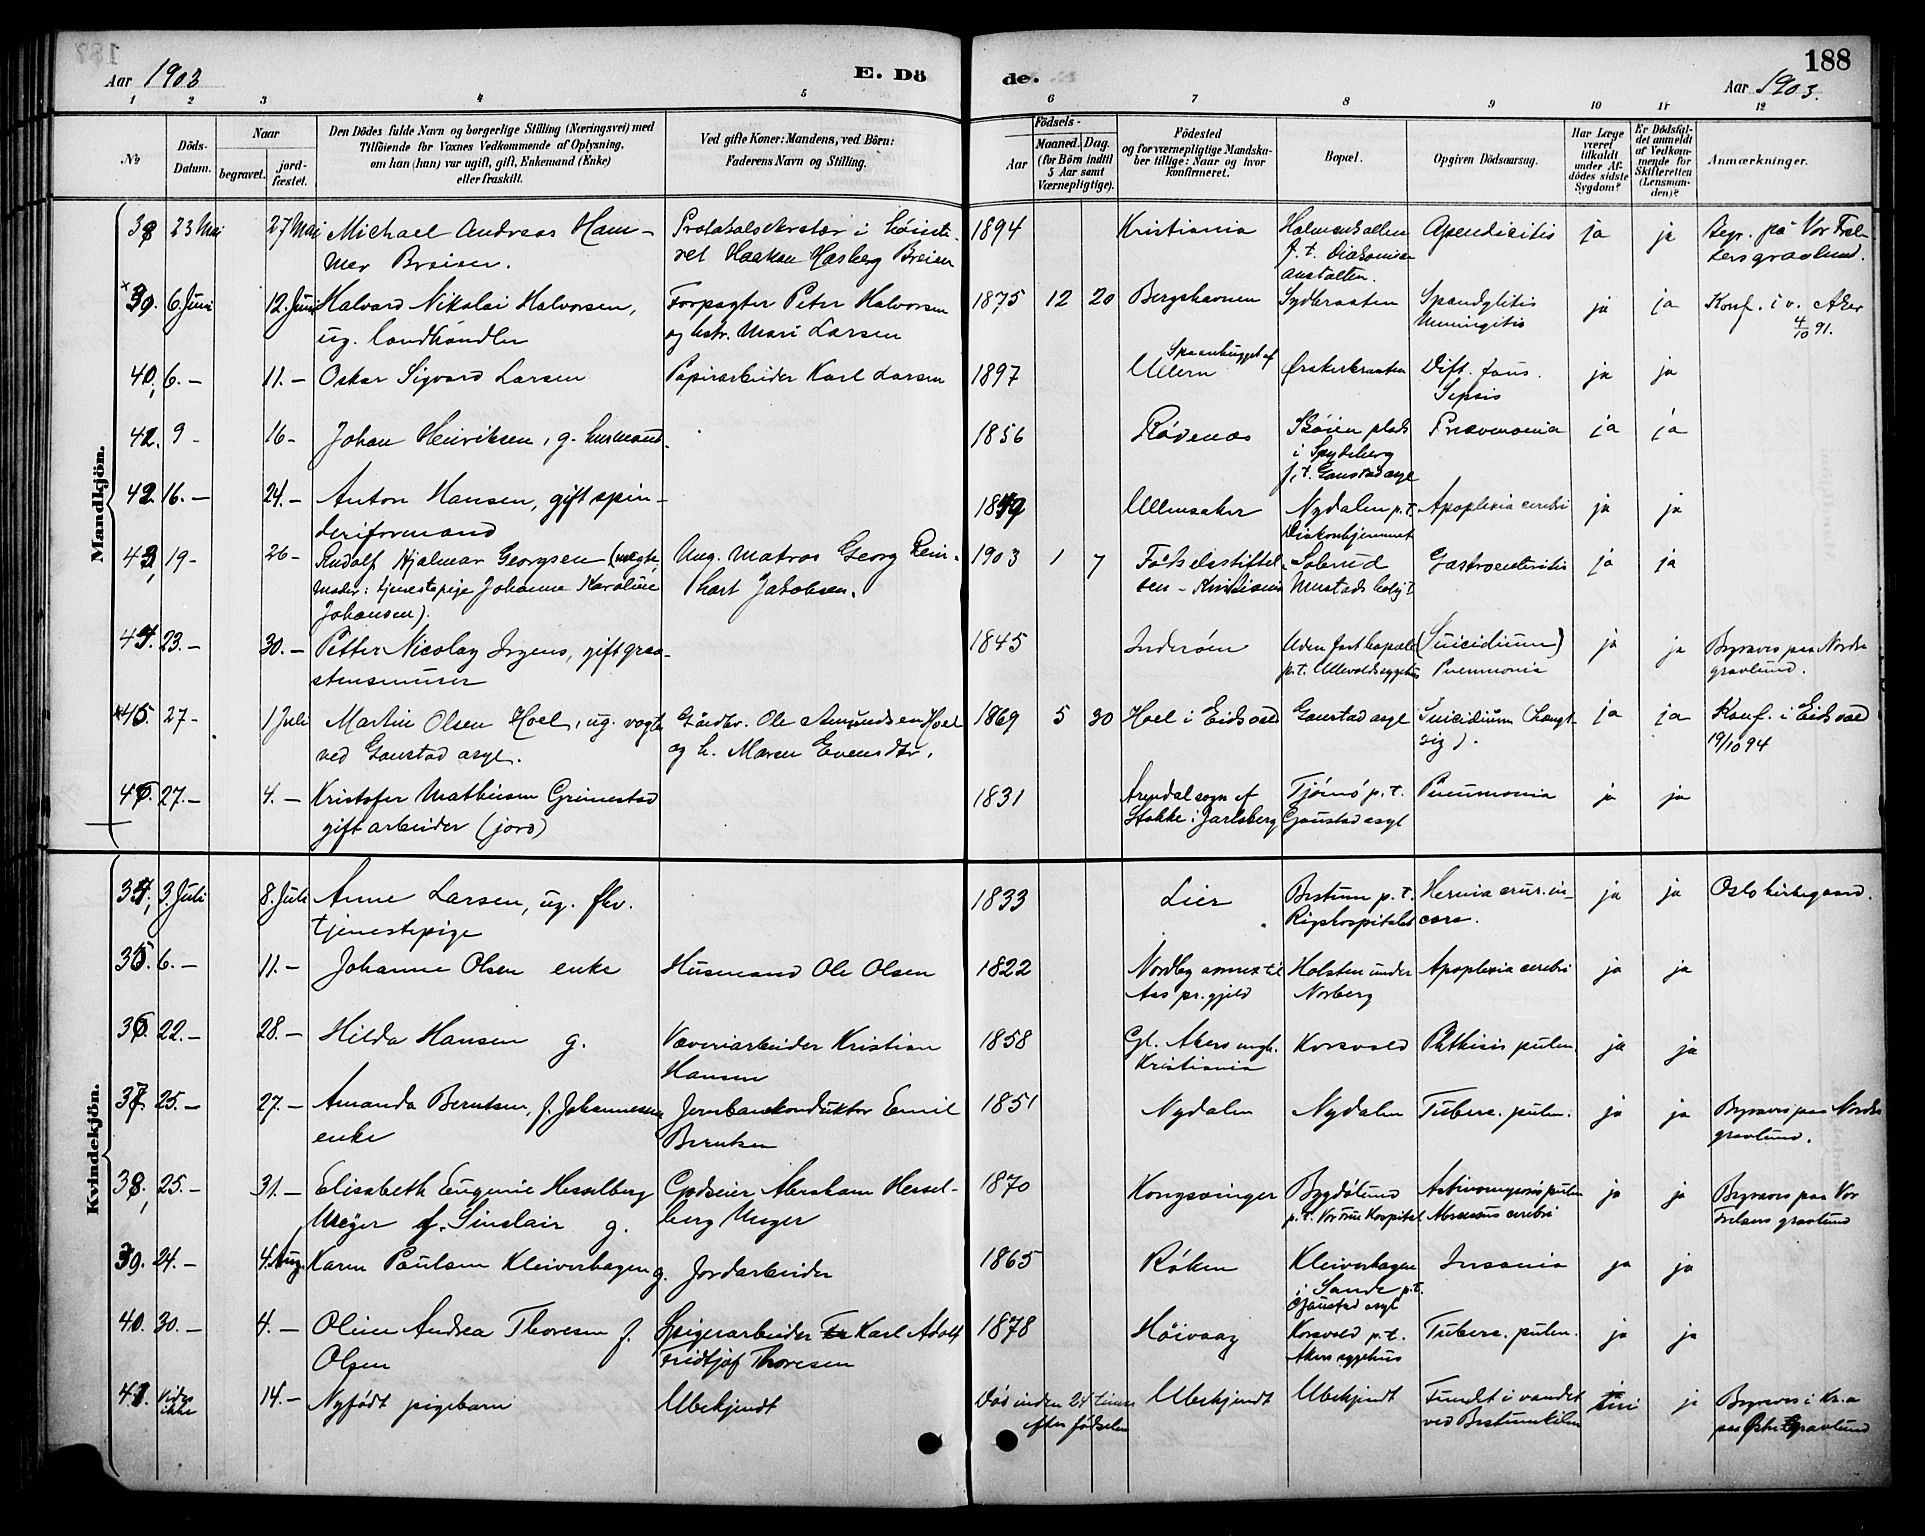 188
Aar 1903
E. Dö
de.
Aar 1903.
1 2 3 4 5 6 7 8 9 10 11 12
No
Döds-
Datum.
Naar
begravet.
jord-
fæstet.
Den Dödes fulde Navn og borgerlige Stilling (Næringsvei) med
Tilföiende for Voxnes Vedkommende af Oplysning,
om han (hun) var ugift, gift, Enkemand (Enke)
eller fraskilt.
Ved gifte Koner: Mandens, ved Börn:
Faderens Navn og Stilling.
Födsels-
Aar
Maaned.
Dag.
(for Börn indtil
5 Aar samt
Værnepligtige).
Födested
og for værnepligtige Mandska-
ber tillige: Naar og hvor
konfirmeret.
Bopæl.
Opgiven Dödsaarsag.
Har Læge
været
tilkaldt
under Af-
dödes sidste
Sygdom?
Er Dödsfal-
det anmeldt
af Vedkom-
mende for
Skifteretten
(Lensman-
den)?
Anmærkninger.
Mandkjön.
38 23 Mai 27 Mai Michael Andreas Ham-
mer Breien.
Protokolsekretær i Höieste-
ret Haakon Hasberg Breien
1894 Kristiania Holmenkollen
p. t. Diakonisse
anstalten.
Apendicitis ja ja Begr. på Vor Frel-
sers gravlund.
39. 6. Juni 12. Juni Halvard Nikolai Halvorsen,
ug. landhandler
Forpagter Peter Halvorsen
og hstr. Mari Larsen
1875 12 20 Bergshavnen Sydbraaten Spondylitis
Meningitis
ja ja Konf. i v. Aker
4/10 91.
40, 6. - 11. - Oskar Sigvard Larsen Papirarbeider Karl Larsen 1897 Ullern Ørakerbraaten Dift. faus.
Sepsis
ja ja
42. 9 - 16 - Johan Henriksen, g. husmand. 1856 Rödenæs Skóien plads
i Spydeberg
p. t. Gaustad asyl
Pneumonia ja ja
42. 16. - 24. - Anton Hansen, gift spin-
deriformand
1849 Ullensaker Nydalen p. t.
Diakonhjemmet
Apoplexia cerebri ja ja
43, 19 - 26 - Rudolf Hjalmar Georgsen (uægte,
moder: tjenestepige Johanne Karoline
Johansen).
Ung. matros Georg Rein-
hart Jakobsen.
1903 1 7 Födselsstiftel-
sen - Kristiania
Solerud
Mustads bolig
Gastroenteritis ja ja
44. 23. - 30. - Petter Nicolay Irgens, gift graa-
stensmurer
1845 Inderöen Uden fast bopæl
p. t. Ullevoldssygehus
(Suicidium)
Pneumonia
ja ja Begraves paa Nordre
gravlund.
45. 27 - 1 Juli Martin Olsen Hoel, ug. vogter
ved Gaustad asyl.
Gårdbr. Ole Amundsen Hoel
og h. Maren Evensdtr.
1869 5 30 Hoel i Eidsvold Gaustad asyl Suicidium
ja ja Konf. i Eidsvold
19/10 94
46. 27. - 4. - Kristofer Mathisen Grimestad
gift arbeider (jord)
1831 Arendal sogn af
Stokke i Jarlsberg
Tjömö p. t.
Gaustad asyl
Pneumonia ja ja
Kvindekjön.
34, 3. Juli 8. Juli Anne Larsen, ug. fhv.
tjenestepige
1833 Lier Bestum p. t.
Rigshospitalet
Hernia crur. in-
carc.
ja ja Oslo kirkegaard.
35. 6. - 11. - Johanne Olsen enke Husmand Ole Olsen 1822 Nordby annex til
Aas pr.gjeld
Holsten under
Norberg
Apoplexia cerebri ja ja
36. 22. - 28. - Hilda Hansen g. Væveriarbeider Kristian
Hansen
1858 Gl. Akers mgh.
Kristiania
Korsvold Phthisis pulm. ja ja
37. 25. - 27. - Amanda Berntsen, f. Johannesen
enke
Jernbanekonduktör Emil
Berntsen
1851 Nydalen Nydalen Tuberc. pulm. ja ja Begraves paa Nordre
gravlund.
38, 25. - 31. - Elisabeth Eugenie Hesselberg
Meyer f. Sinclair g.
Godseier Abraham Hessel-
berg Meyer
1870 Kongsvinger Bygdölund
p. t. Vor Frue Hospital
Aktinomycosis pulm
Abscessus cerebri
ja ja Begraves paa Vor
Frelsers gravlund
39. 24. - 4. Aug. Karen Paulsen Kleiverhagen g. Jordarbeider 1865 Röken Kleiverhagen
i Sande p. t.
Gaustad asyl
Insania ja ja
40. 30. - 4. - Oline Andrea Thoresen f.
Olsen
Spigerarbeider Karl Adolf
Fridtjof Thoresen
1878 Höivaag Korsvold p. t.
Akers sygehus
Tuberc. pulm. ja ja
41. Vides
ikke
14. - Nyfödt pigebarn Ubekjendt Död inden 24 timer
efter födselen
Ubekjendt Ubekjendt Fundet i vandet
ved Bestumkilen
ja Begraves i Kr.a
paa Østre gravlund